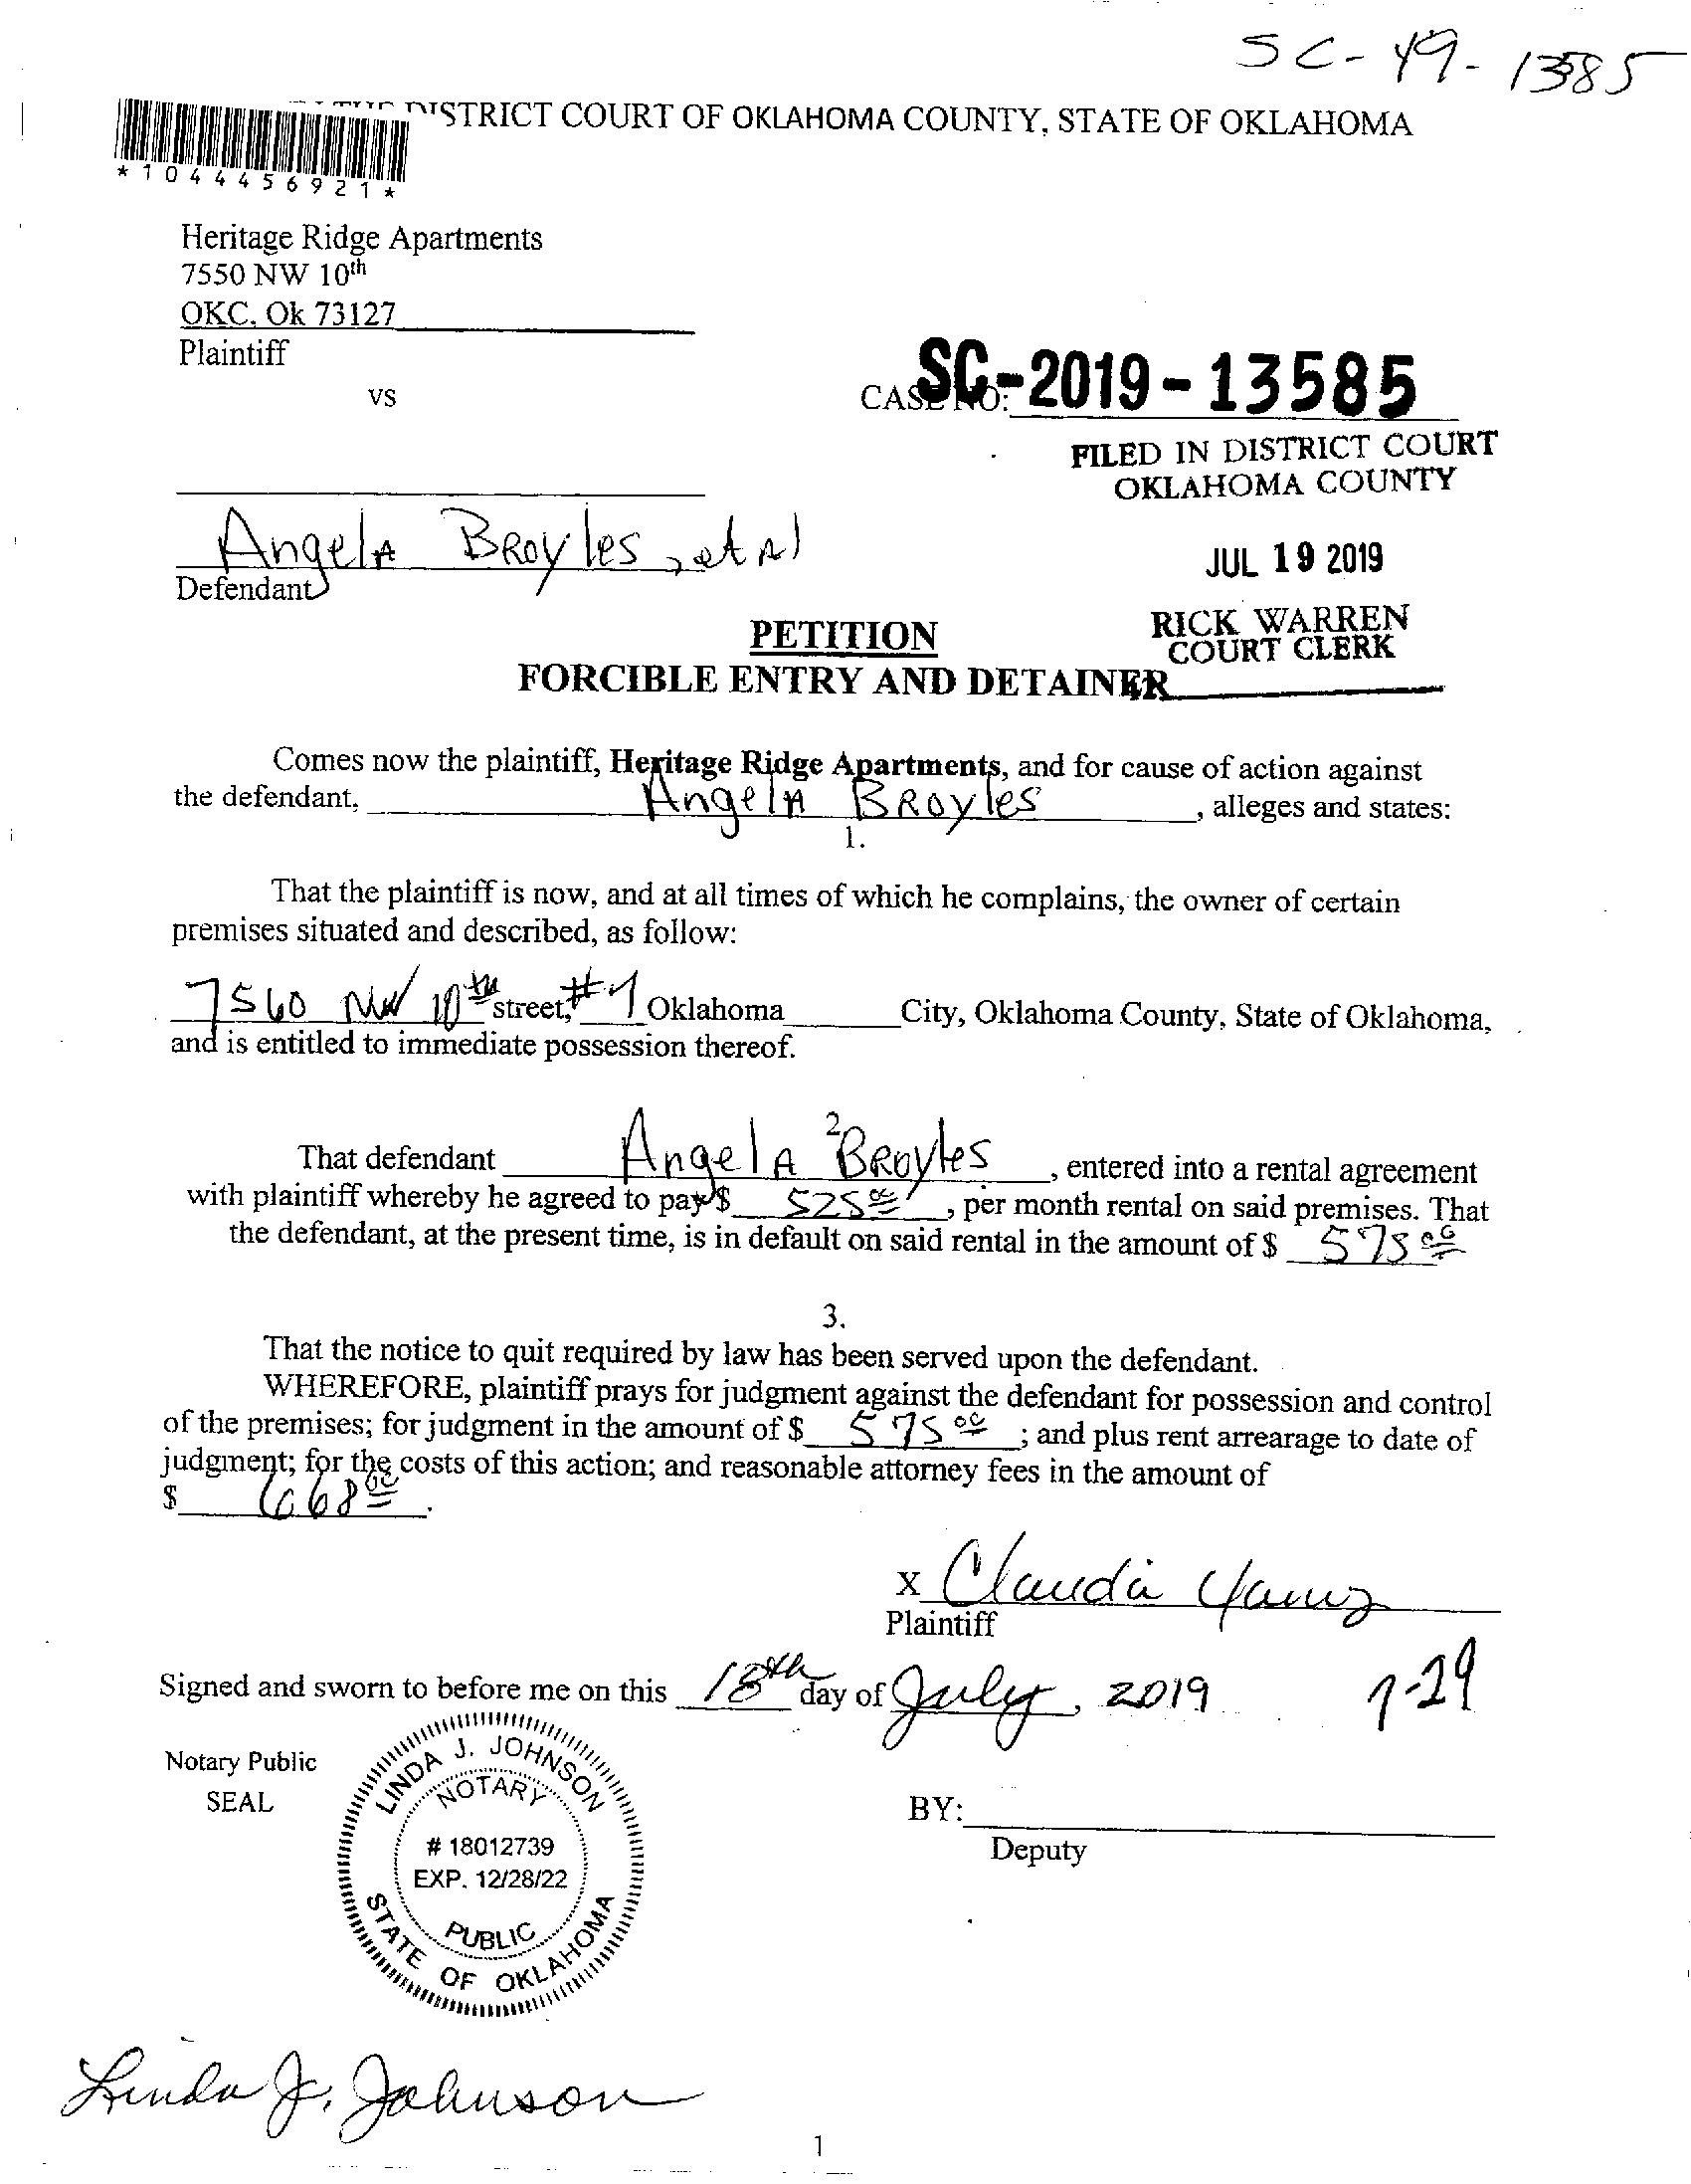 SC-19-13585
DISTRICT COURT OF OKLAHOMA COUNTY, STATE OF OKLAHOMA
*1044456921*
Heritage Ridge Apartments
7550 NW 10th
OKC, Ok 73127
Plaintiff
vs
CASE NO:
SC-2019-13585
FILED IN DISTRICT COURT
OKLAHOMA COUNTY
Angela Broyles, et al
Defendant
JUL 19 2019
RICK WARREN
COURT CLERK
PETITION
FORCIBLE ENTRY AND DETAINER
Comes now the plaintiff, Heritage Ridge Apartments, and for cause of action against
the defendant, Angela Broyles, alleges and states:
1.
That the plaintiff is now, and at all times of which he complains, the owner of certain
premises situated and described, as follow:
7560 NW 10th street, #1 Oklahoma City, Oklahoma County, State of Oklahoma,
and is entitled to immediate possession thereof.
2.
That defendant Angela Broyles, entered into a rental agreement
with plaintiff whereby he agreed to pay $ 525 00, per month rental on said premises. That
the defendant, at the present time, is in default on said rental in the amount of $ 575 00
3.
That the notice to quit required by law has been served upon the defendant.
WHEREFORE, plaintiff prays for judgment against the defendant for possession and control
of the premises; for judgment in the amount of $ 575 00; and plus rent arrearage to date of
judgment; for the costs of this action; and reasonable attorney fees in the amount of
$ 668 00.
x Claudia
Plaintiff
Signed and sworn to before me on this 18th day of July, 2019
7-29
Notary Public
SEAL
LINDA J. JOHNSON
NOTARY
# 18012739
EXP. 12/28/22
PUBLIC
STATE OF OKLAHOMA
BY:
Deputy
Linda J. Johnson
1